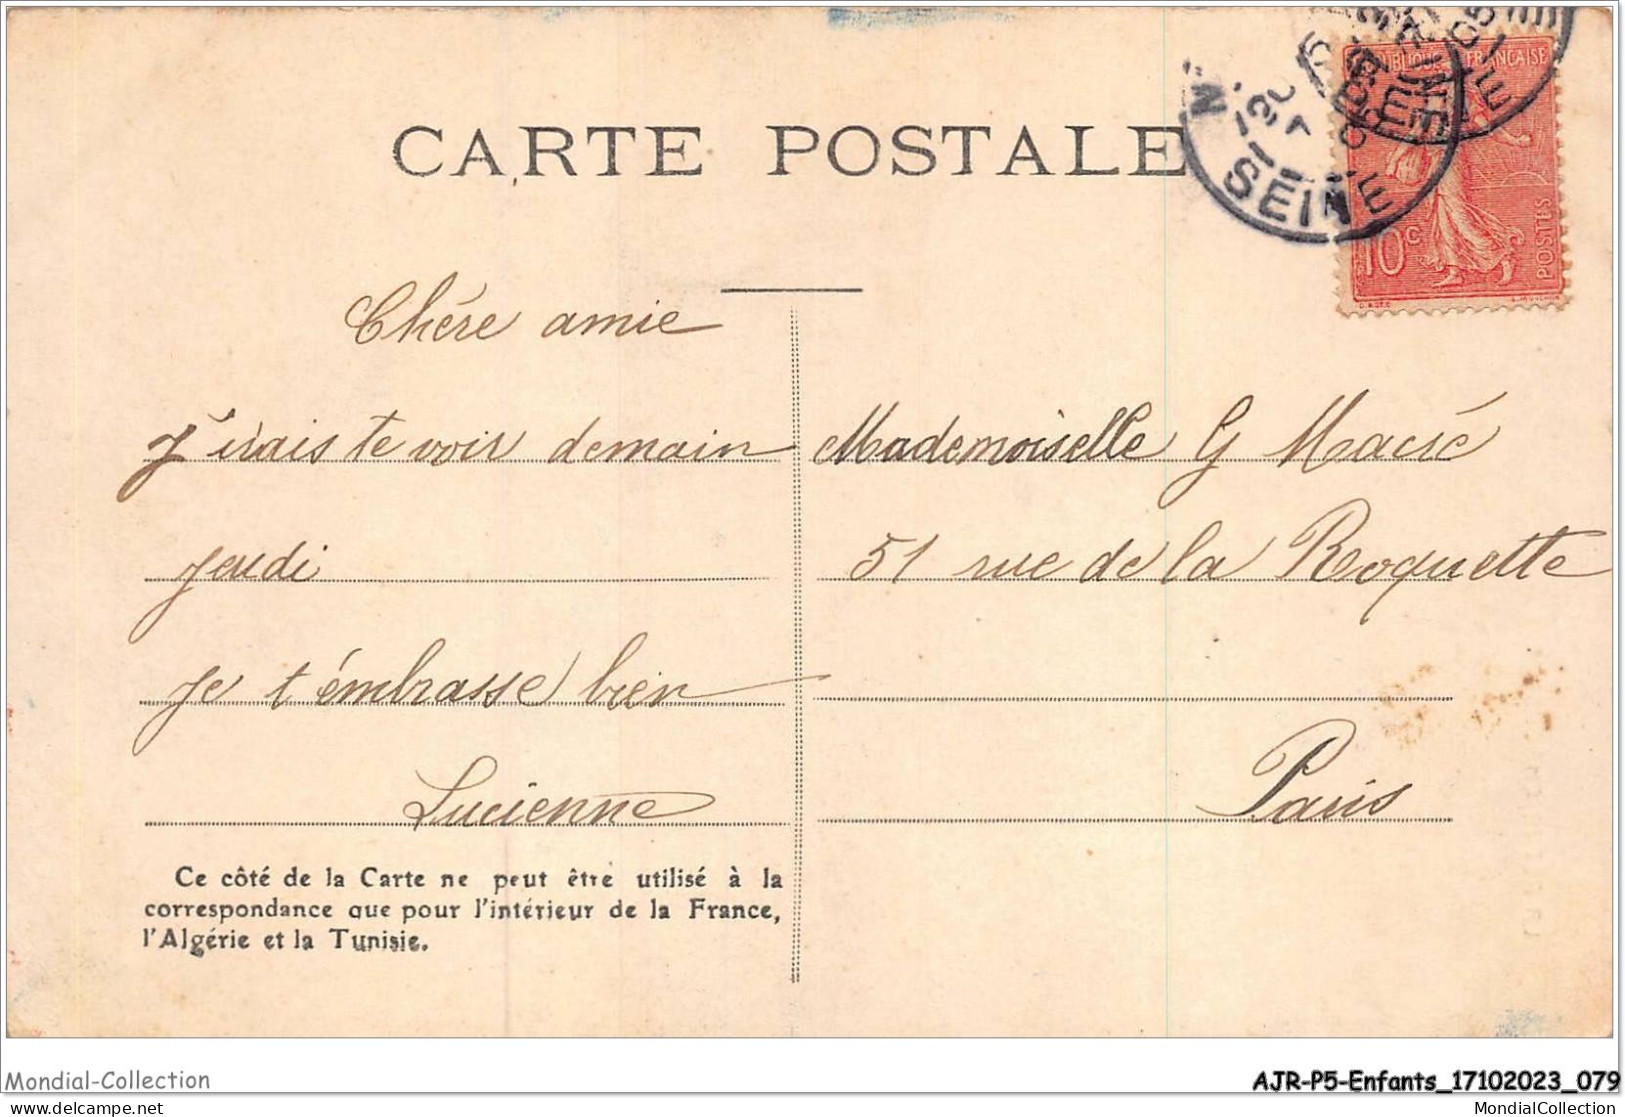 CARTE POSTALE
RÉPUBLIQUE FRANÇAISE
SEINE
10c
POSTES
Chére amie
J'irais te voir demain
jeudi
Je t'émbrasse bien
Lucienne
Mademoiselle G Macré
51 rue de la Roquette
Paris
Ce côté de la Carte ne peut être utilisé à la
correspondance que pour l'intérieur de la France,
l'Algérie et la Tunisie.
Mondial-Collection
AJR-P5-Enfants_17102023_079
delcampe.net
MondialCollection